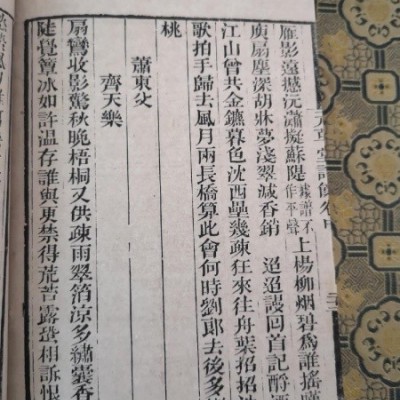 雁影遠撼沅瀟擬蘇隄 上楊柳烟碧爲誰搖
庾扇塵深胡牀夢淺翠減香銷 迢迢謾回首記酹酒
江山曾共金鑣暮色沈西壘幾疎狂來往舟葉招招
歌拍手歸去風月兩長橋算此會何時劉郞去後多
桃
蕭東父
齊天樂
扇鸞收影驚秋晚梧桐又供疎雨翠箔涼多繡囊香
陡覺簟冰如許溫存誰與更禁得荒苔露蛩相訴恨